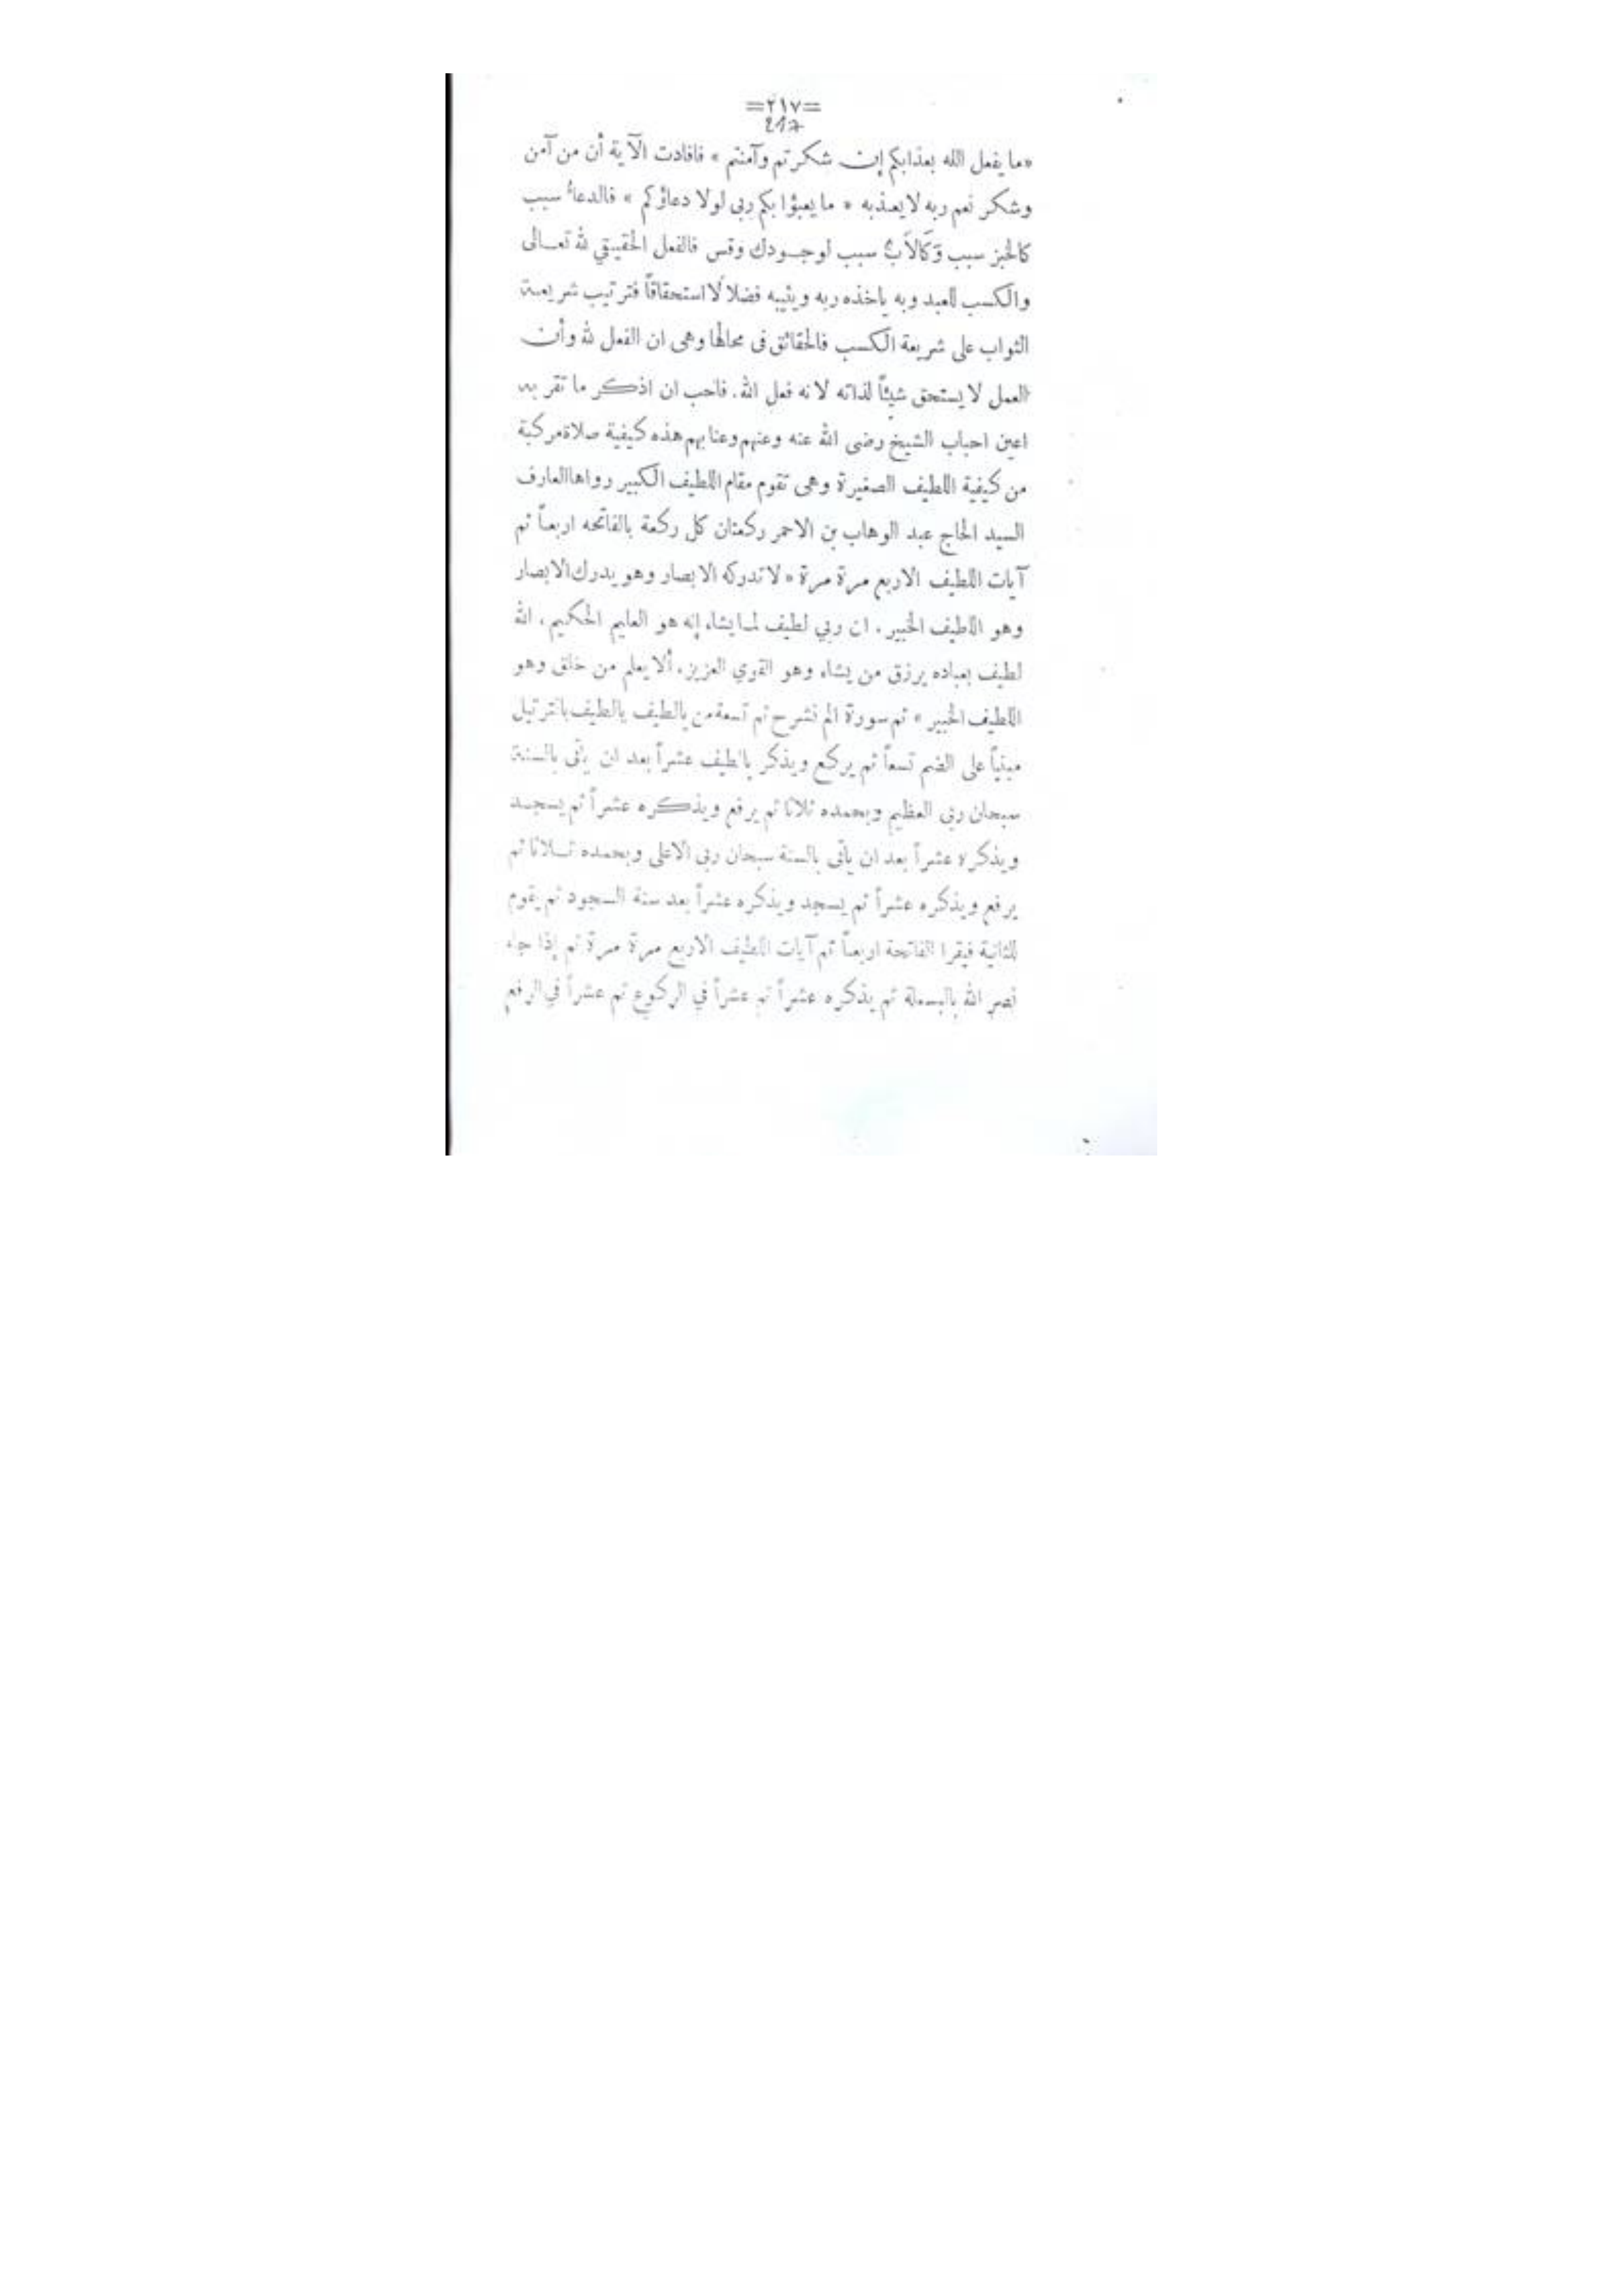 =٢١٧=
217
«ما يفعل الله بعذابكم إن شكرتم وآمنتم» فافادت الآية أن من آمن
وشكر نعم ربه لا يعذبه «ما يعبؤا بكم ربى لولا دعاؤكم» فالدعاءُ سبب
كالخبز سبب وَكَالأَبُ سبب لوجودك وقس فالفعل الحقيقي لله تعالى
والكسب للعبد وبه ياخذه ربه ويثيبه فضلا لا استحقاقاً فترتيب شريعة
الثواب على شريعة الكسب فالحقائق فى محالها وهى ان الفعل لله وأن
العمل لا يستحق شيئاً لذاته لانه فعل الله. فاحب ان اذكر ما تقر به
اعين احباب الشيخ رضى الله عنه وعنهم وعنا بهم هذه كيفية صلاة مركبة
من كيفية اللطيف الصغيرة وهى تقوم مقام اللطيف الكبير رواها العارف
السيد الحاج عبد الوهاب بن الاحمر ركعتان كل ركعة بالفاتحه اربعاً ثم
آيات اللطيف الاربع مرة مرة «لا تدركه الابصار وهو يدرك الابصار
وهو اللطيف الخبير. ان ربي لطيف لما يشاء إنه هو العليم الحكيم. الله
لطيف بعباده يرزق من يشاء وهو القوي العزيز. ألا يعلم من خلق وهو
اللطيف الخبير» ثم سورة الم نشرح ثم تسعة من يالطيف يالطيف بالترتيل
مبنياً على الضم تسعاً ثم يركع ويذكر يالطيف عشراً بعد ان يأتى بالسنة
سبحان ربى العظيم وبحمده ثلاثا ثم يرفع ويذكره عشراً ثم يسجد
ويذكره عشراً بعد ان يأتى بالسنة سبحان ربى الاعلى وبحمده ثلاثا ثم
يرفع ويذكره عشراً ثم يسجد ويذكره عشراً بعد سنة السجود ثم يقوم
للثانية فيقرا الفاتحة اربعاً ثم آيات اللطيف الاربع مرة مرة ثم إذا جاء
نصر الله بالبسملة ثم يذكره عشراً ثم عشراً في الركوع ثم عشراً في الرفع